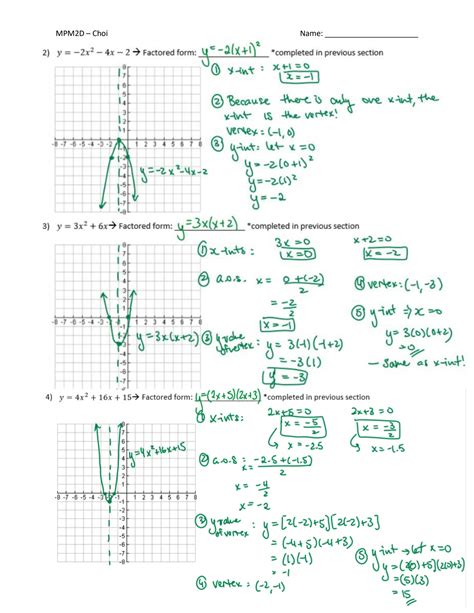 MPM2D – Choi Name:
2) y = −2x² − 4x − 2 → Factored form: y = −2(x+1)² *completed in previous section
① x-int: x+1=0
x=−1
② Because there is only one x-int, the
x-int is the vertex!
vertex: (−1,0)
③ y-int: let x=0
y=−2(0+1)²
y=−2(1)²
y=−2
y=−2x²−4x−2
3) y = 3x² + 6x → Factored form: y=3x(x+2) *completed in previous section
① x-ints: 3x=0 x+2=0
x=0 x=−2
② a.o.s. x = 0+(−2)
2
= −2
2
x=−1
③ y value of vertex: y = 3(−1)(−1+2)
= −3(1)
y=−3
④ vertex: (−1,−3)
⑤ y-int ⇒ x=0
y = 3(0)(0+2)
= 0
— same as x-int!
y=3x(x+2)
4) y = 4x² + 16x + 15 → Factored form: y=(2x+5)(2x+3) *completed in previous section
① x-ints: 2x+5=0 2x+3=0
x = −5/2 x = −3/2
↳ x=−2.5 ↳ x=−1.5
② a.o.s: x = −2.5+(−1.5)
2
x = −4
2
x = −2
③ y value of vertex: y = [2(−2)+5][2(−2)+3]
= (−4+5)(−4+3)
= (1)(−1)
= −1
④ vertex: (−2,−1)
⑤ y int → let x=0
y=(2(0)+5)(2(0)+3)
=(5)(3)
= 15
y=4x²+16x+15